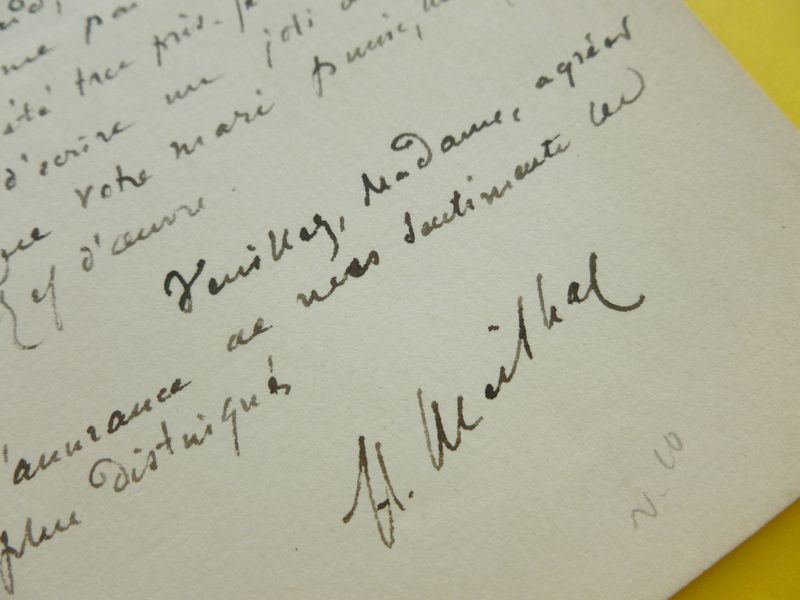 me pas
été très près. Je
d'écrire un joli
que votre mari puisse,
chef d'œuvre.
Veuillez, Madame, agréer
l'assurance de mes sentiments les
plus distingués
H. Meilhac